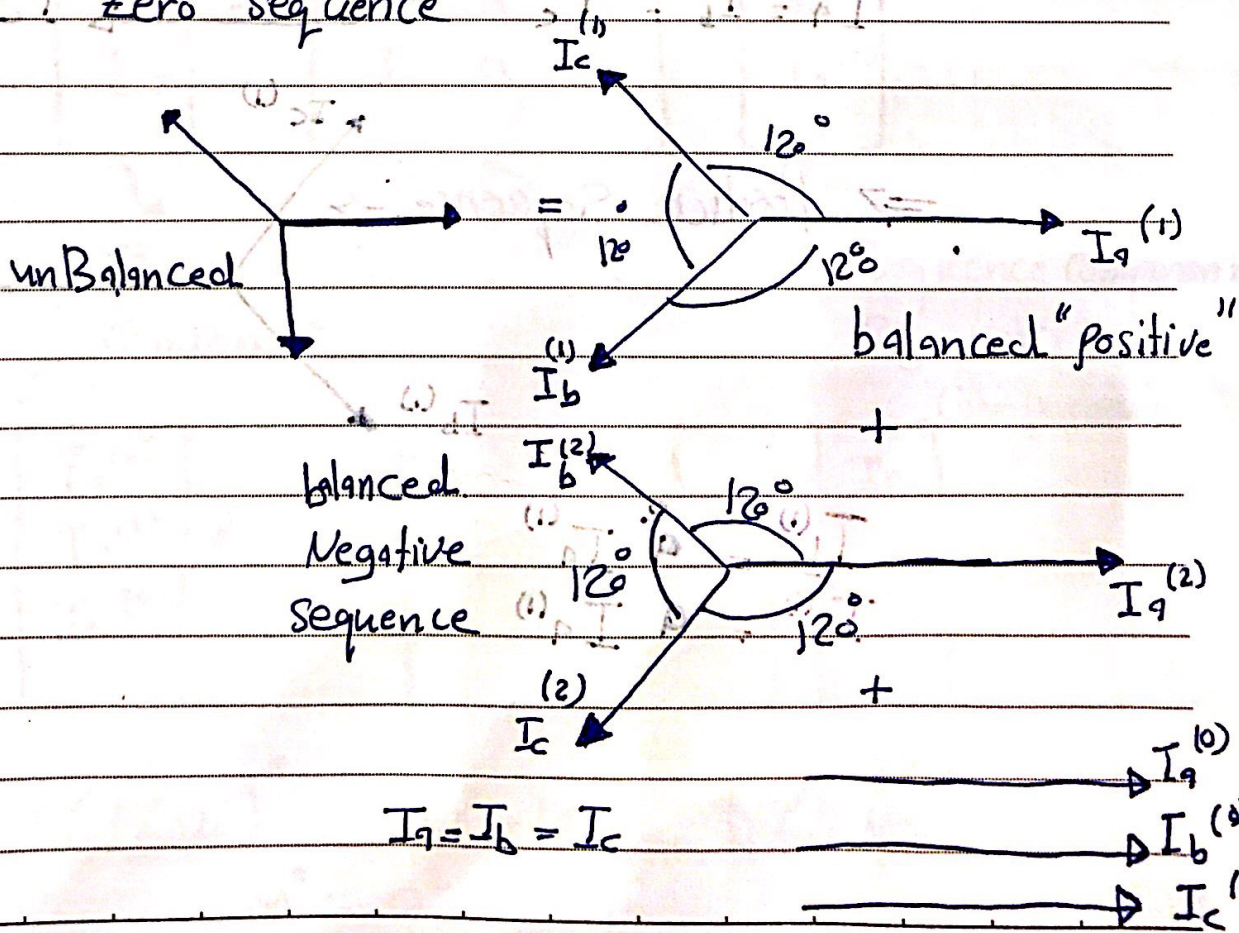 Zero sequence
I_c^(1)
120°
=
120
unBalanced
I_a^(1)
120°
balanced "positive"
I_b^(1)
+
I_b^(2)
balanced
Negative
sequence
120°
120°
I_a^(2)
120°
+
I_c^(2)
I_a^(0)
I_a = I_b = I_c
I_b^(
I_c^(